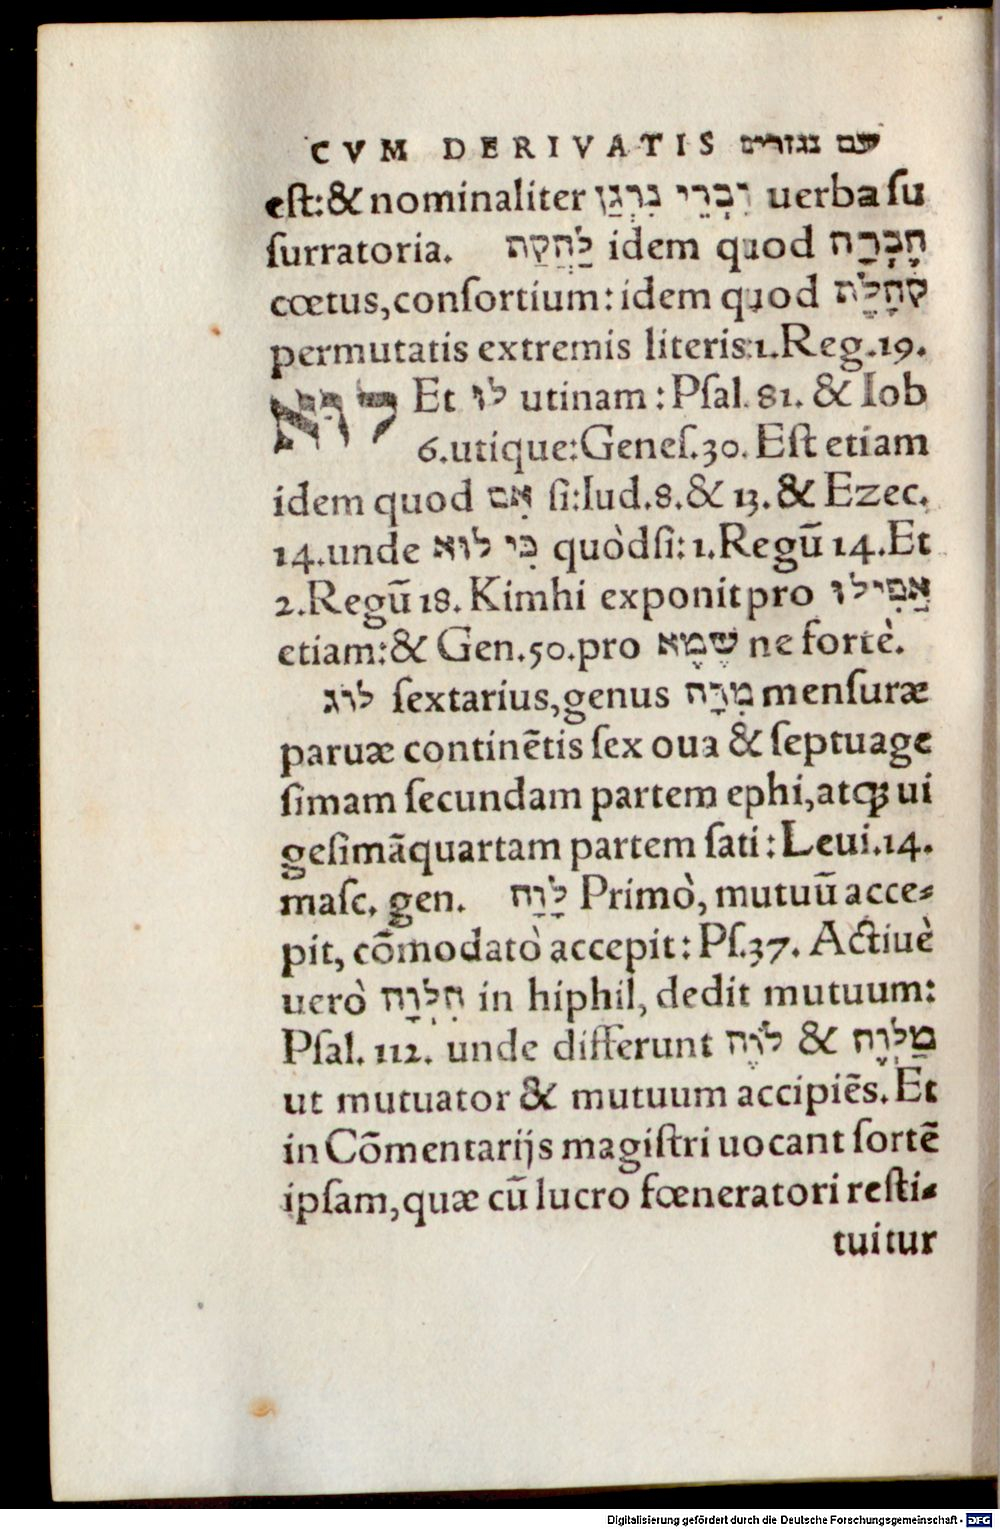 CVM DERIVATIS עם נגזרים
eſt:& nominaliter דִּבְרֵי נִרְגַּן uerba ſu
ſurratoria. לַהֲקַת idem quod חֶבְרָה
cœtus,conſortium: idem quod קְהִלַּת
permutatis extremis literis:1.Reg.19.
לוּא Et לוּ utinam : Pſal. 81. & Iob
6.utique:Geneſ.30. Eſt etiam
idem quod אִם ſi:Iud.8.& 13.& Ezec.
14.unde כִּי לוּא quòdſi: 1.Regū 14.Et
2.Regū 18. Kimhi exponit pro אֲפִילוּ
etiam:& Gen.50.pro שֶׁמָּא ne fortè.
לוֹג ſextarius,genus מִדָּה menſuræ
paruæ continētis ſex oua & ſeptuage
ſimam ſecundam partem ephi,atq; ui
geſimāquartam partem ſati : Leui.14.
maſc. gen. לָוָה Primò, mutuū acce-
pit, cōmodatò accepit : Pſ.37. Actiuè
uerò הִלְוָה in hiphil, dedit mutuum:
Pſal. 112. unde differunt לֹוֶה & מַלְוֶה
ut mutuator & mutuum accipiēs. Et
in Cōmentarijs magiſtri uocant ſortē
ipſam,quæ cū lucro fœneratori reſti-
tuitur
Digitalisierung gefördert durch die Deutsche Forschungsgemeinschaft - DFG